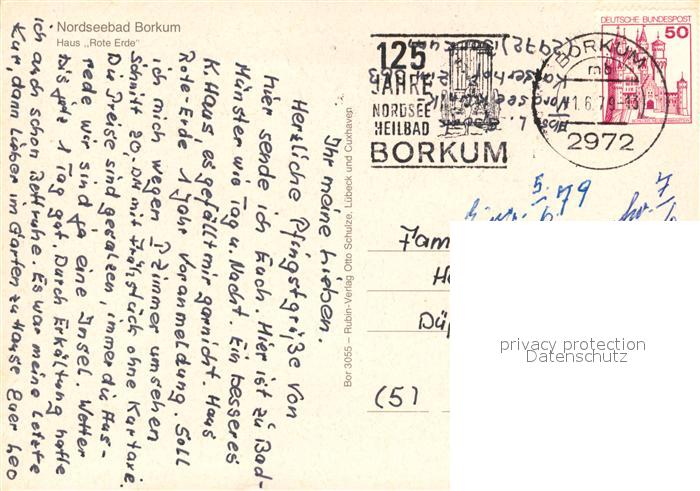 Nordseebad Borkum
Haus „Rote Erde"
Ihr meine Lieben.
Herzliche Pfingstgrüße von
hier sende ich Euch. Hier ist zu Bad-
Münster wie Tag u. Nacht. Ein besseres
K. Haus, es gefällt mir garnicht. Haus
Rote-Erde 1 Jahr Voranmeldung. Soll
ich mich wegen Zimmer umsehen
Schnitt 20.DM mit Frühstück ohne Kurtaxe.
Die Preise sind gesalzen, immer die Aus-
rede wir sind ja eine Insel. Wetter
bis jetzt 1 Tag gut. Durch Erkältung hatte
ich auch schon Bettruhe. Es war meine letzte
Kur, dann lieber im Garten zu Hause Euer Leo
Bor 3055 – Rubin-Verlag Otto Schulze, Lübeck und Cuxhaven
125
JAHRE
NORDSEE
HEILBAD
BORKUM
(2972) Borkum
Nordseeklinik
BORKUM
mb
11.6.79-13
2972
DEUTSCHE BUNDESPOST
50
5.
6.79
7
Fam
Ha
Dü
(5)
privacy protection
Datenschutz